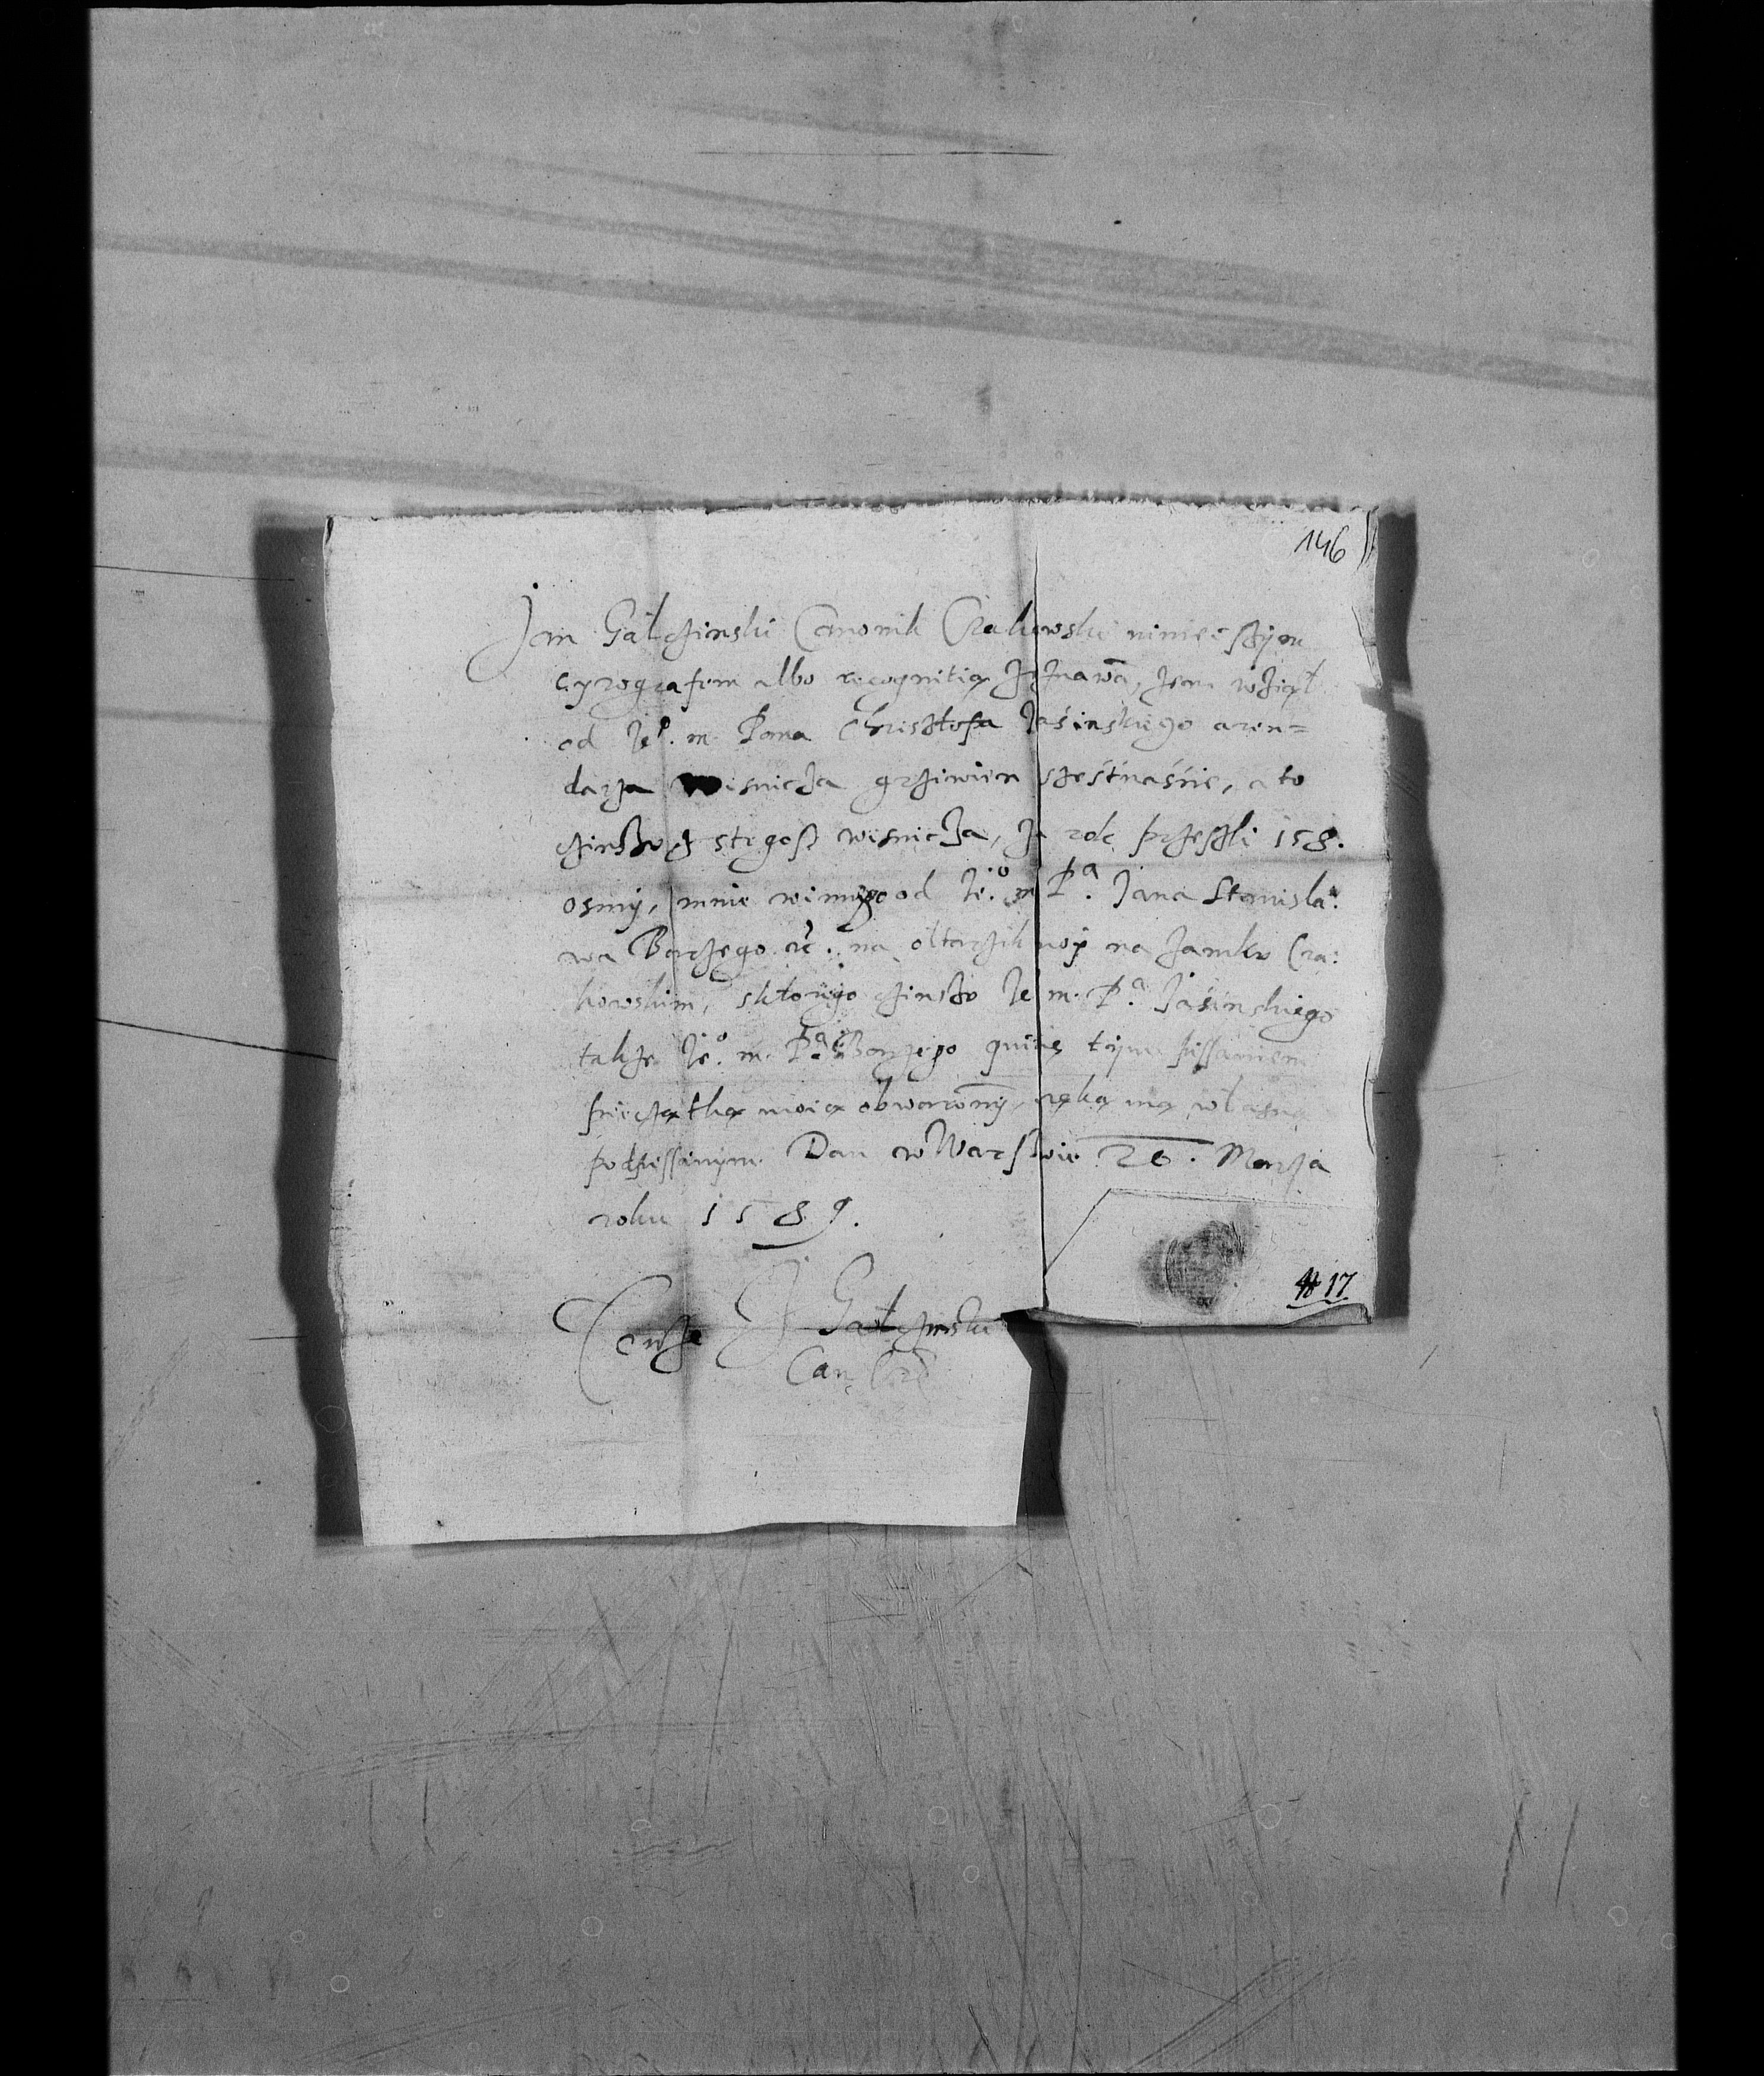 146
Jan Gałczinski Canonik Crakowski ninieiszÿm
cyrografem albo recognitią zeznawa, żem wziął
od Je⁰. m. Pana Chrisztofa Jasinskiego aren=
darza Wisnicza grziwien szesćnascie, a to
czinszowy stegosz wisnicza, za rok przeszłi 158.
osmÿ, mnie winnÿ od Je⁰. m. Pᵃ. Jana Stanisla:
wa Barzego etc. na ołtarzik moÿ na zamku Cra:
kowskim, sktorego czinszu Je m. Pᵃ. Jasinskiego
takze Je⁰. m. Pᵃ. Barzego quituię tÿm pissaniem
pieczątką moią obwarowanÿ, ręką mą własną
podpissanym. Dan w Warszawie 26. Marza
roku 1589.
Tenże J Gałczinski
Can: Cra
# 17